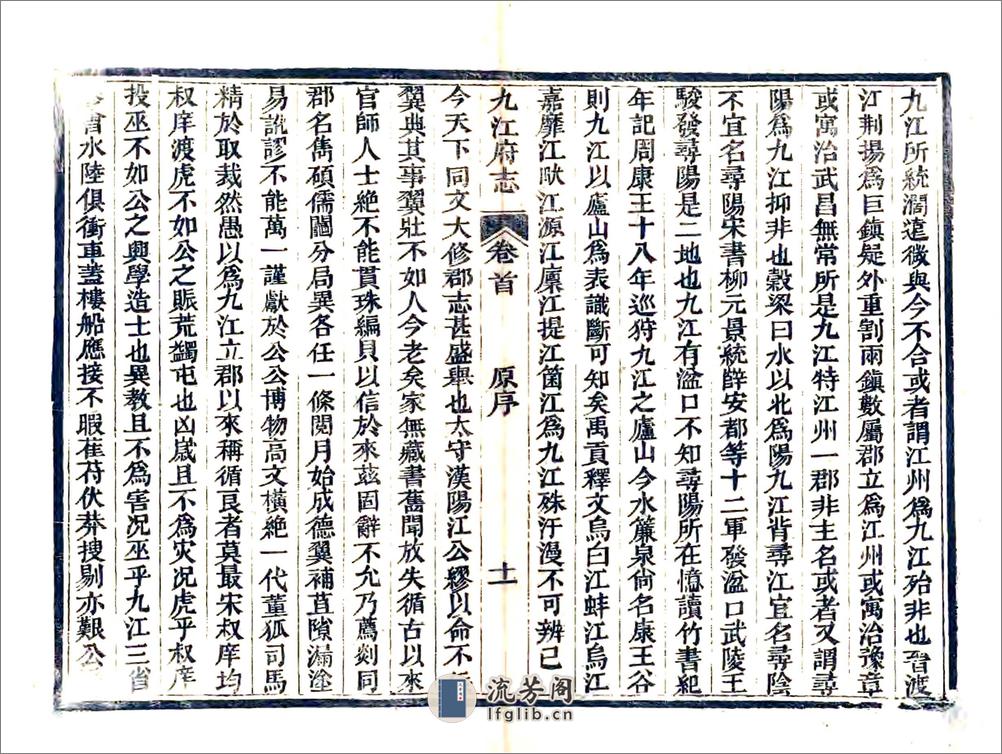 九江所統濶遠微與今不合或者謂江州爲九江殆非也晉渡
江荆揚爲巨鎭疑外重割兩鎭數屬郡立爲江州或寓治豫章
或寓治武昌無常所是九江特江州一郡非主名或者又謂尋
陽爲九江抑非也穀梁曰水以北爲陽九江背尋江宜名尋陰
不宜名尋陽宋書柳元景統薛安都等十二軍發湓口武陵王
駿發尋陽是二地也九江有湓口不知尋陽所在憶讀竹書紀
年記周康王十八年巡狩九江之廬山今水簾泉尙名康王谷
則九江以廬山爲表識斷可知矣禹貢釋文烏白江蚌江烏江
嘉靡江畎江源江廩江提江箘江爲九江殊汗漫不可辨已
九江府志 卷首 原序 十一
今天下同文大修郡志甚盛舉也太守漢陽江公繆以命不
翼典其事翼壯不如人今老矣家無藏書舊聞放失循古以來
官師人士絕不能貫珠編貝以信於來玆固辭不允乃薦剡同
郡名儁碩儒鬮分局異各任一條閱月始成德翼補苴隙漏塗
易訛謬不能萬一謹獻於公公博物高文橫絕一代董狐司馬
精於取裁然愚以爲九江立郡以來稱循良者莫最宋叔庠均
叔庠渡虎不如公之賑荒蠲屯也凶歲且不爲灾况虎乎叔庠
投巫不如公之興學造士也異教且不爲害况巫乎九江三省
會水陸俱衝車蓋樓船應接不暇萑苻伏莽搜剔亦艱公
流芳阁
lfglib.cn